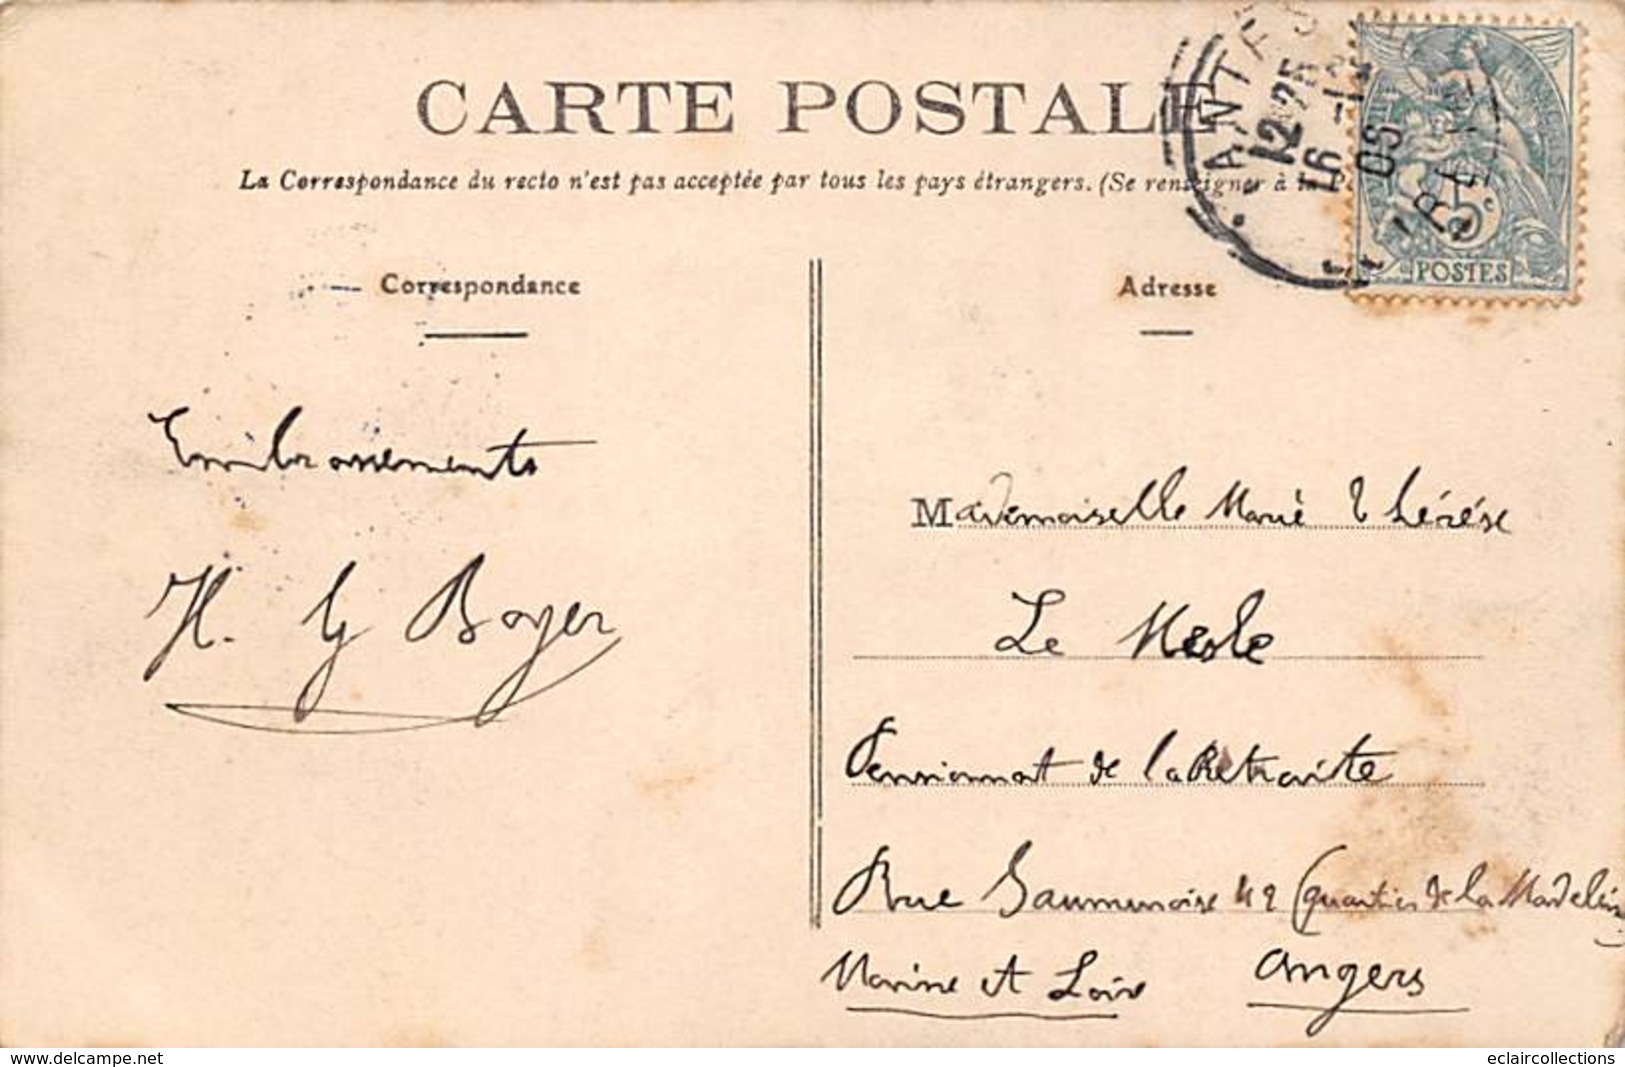 CARTE POSTALE
La Correspondance du recto n'est pas acceptée par tous les pays étrangers. (Se renseigner à la
Correspondance
Adresse
NANTES
12 25
16 -12
05
POSTES
Embrassements
H. G Boyer
Mademoiselle Marie Thérèse
Le Mesle
Pensionnat de la Retraite
Rue Saumuroise 42 (quartier de la Madeleine
Marine et Loire Angers
www.delcampe.net
eclaircollections